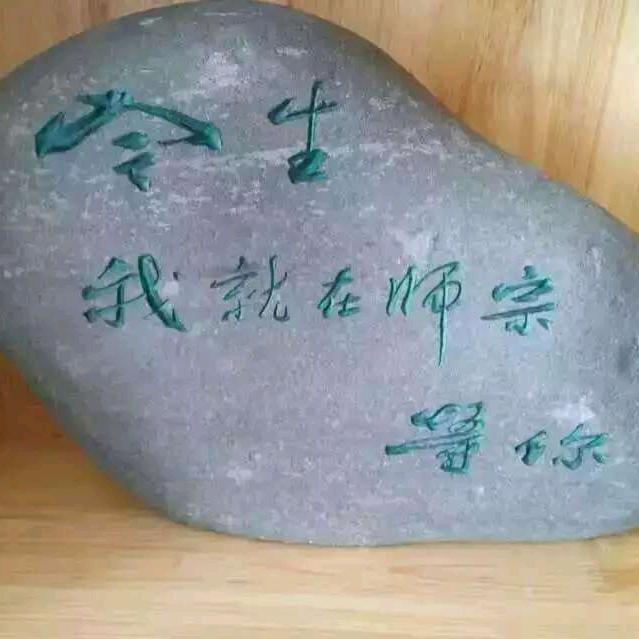 今生
我就在师宗
等你